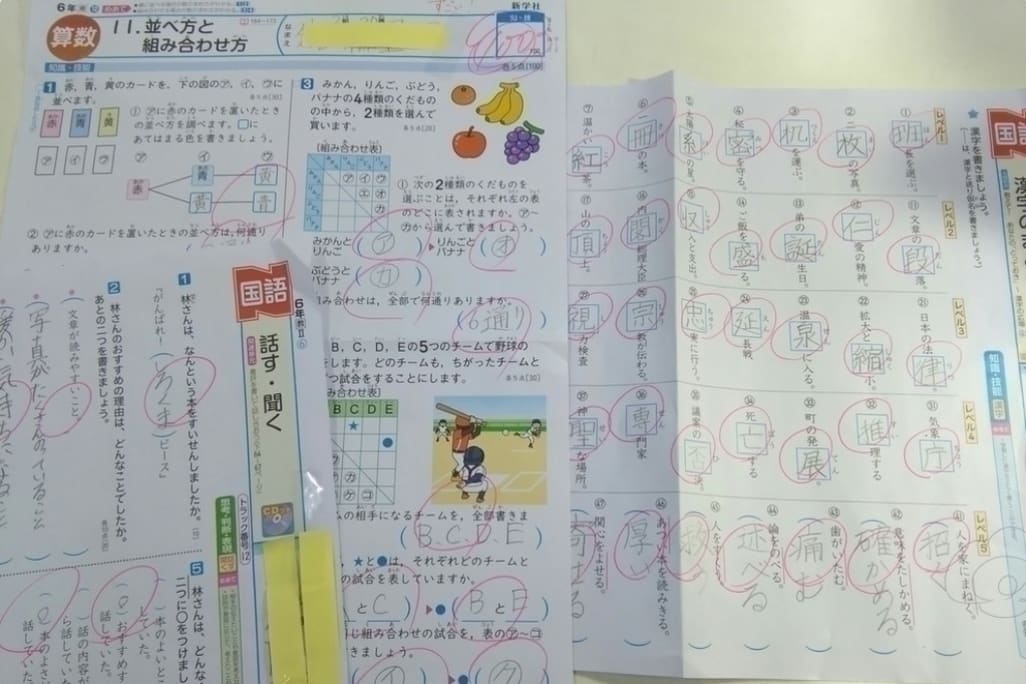 6年
新学社
算数
11.並べ方と
組み合わせ方
なまえ
知・技
100
各5点[100]
知識・技能
1 赤、青、黄のカードを、下の図のア、イ、ウに
並べます。
各5点[30]
赤 青 黄
ア イ ウ
① アに赤のカードを置いたとき
の並べ方を調べます。□に
あてはまる色を書きましょう。
ア イ ウ
赤 青 黄
黄 青
② アに赤のカードを置いたときの並べ方は、何通り
ありますか。
3 みかん、りんご、ぶどう、
バナナの4種類のくだもの
の中から、2種類を選んで
買います。
各5点[20]
〔組み合わせ表〕
ア イ ウ
エ オ
カ
① 次の2種類のくだものを
選ぶことは、それぞれ左の表
のどこに表されますか。ア〜
カから選んで書きましょう。
みかんと
りんご (ア)
りんごと
バナナ (オ)
ぶどうと
バナナ (カ)
組み合わせは、全部で何通りありますか。
(6通り)
B、C、D、Eの5つのチームで野球の
します。どのチームも、ちがったチームと
つ試合をすることにします。
各5点[30]
み合わせ表〕
B C D E
ムの相手になるチームを、全部書きま
(B、C、D、E)
★と●は、それぞれどのチームと
の試合を表していますか。
と C) ●(BとE)
じ組み合わせの試合を、表のア〜コ
きましょう。
国語
6年
話す・聞く
CD
トラック番号12
思考・判断・表現
1 林さんは、なんという本をすいせんしましたか。
『がんばれ！(いろくま)ピース』
2 林さんのおすすめの理由は、どんなことでしたか。
あとの二つを書きましょう。
文章が読みやすいこと。
(写真がたくさんのっていること
5 林さんは、どんな
二つに○をつけまし
( )本のよいとこ
していた。
(○)おすすめす
話していた。
( )話の内容が
ら話していた
(○)本のよさ
話していた
国語
知識・技能
漢字
★漢字を書きましょう。
(〜は、漢字と送り仮名を書きましょう。)
レベル1
① 班長を選ぶ。
② 二枚の写真。
③ 机を運ぶ。
④ 秘密を守る。
⑤ 太陽系の星。
⑥ 二冊の本。
⑦ 温かい紅茶。
レベル2
⑪ 文章の段落。
⑫ 仁愛の精神。
⑬ 弟の誕生日。
⑭ ご飯を盛る。
⑮ 収入と支出。
⑯ 内閣総理大臣
⑰ 山の頂上。
レベル3
㉑ 日本の法律。
㉒ 拡大と縮小。
㉓ 温泉に入る。
㉔ 延長戦
㉕ 忠実に行う。
㉖ 宗教が伝わる。
㉗ 視力検査
レベル4
㉛ 気象庁
㉜ 推理する
㉝ 町の発展。
㉞ 死亡する
㉟ 議案の否決。
㊱ 専門家
㊲ 神聖な場所。
レベル5
㊶ 人を家にまねく。
招
㊷ 意味をたしかめる。
確かめる
㊸ 歯がいたむ。
痛む
㊹ 論をのべる。
述べる
㊺ 人をすくう。
救う
㊻ あつい本を読みきる。
厚い
㊼ 関心をよせる。
寄せる